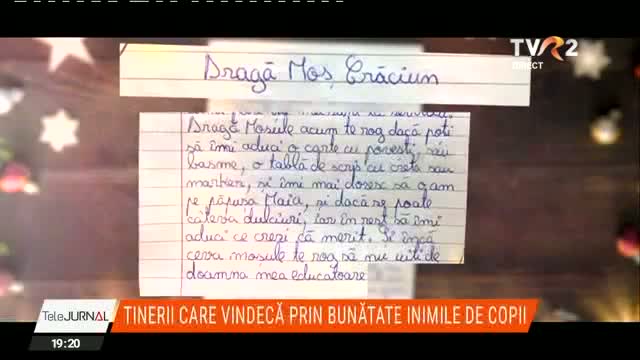 TVR2
DIRECT
Dragă Moș Crăciun
Dragă Mosule acum te rog dacă poti
să îmi aduci o carte cu povesti, sau
basme, o tablă de scris cu creta sau
marker, și îmi mai doresc sa o am
pe păpușa Maia, și dacă se poate
câteva dulciuri, iar în rest să îmi
aduci ce crezi că merit. Și încă
ceva mosule te rog să nu uiti de
doamna mea educatoare
TeleJURNAL
TINERII CARE VINDECĂ PRIN BUNĂTATE INIMILE DE COPII
19:20